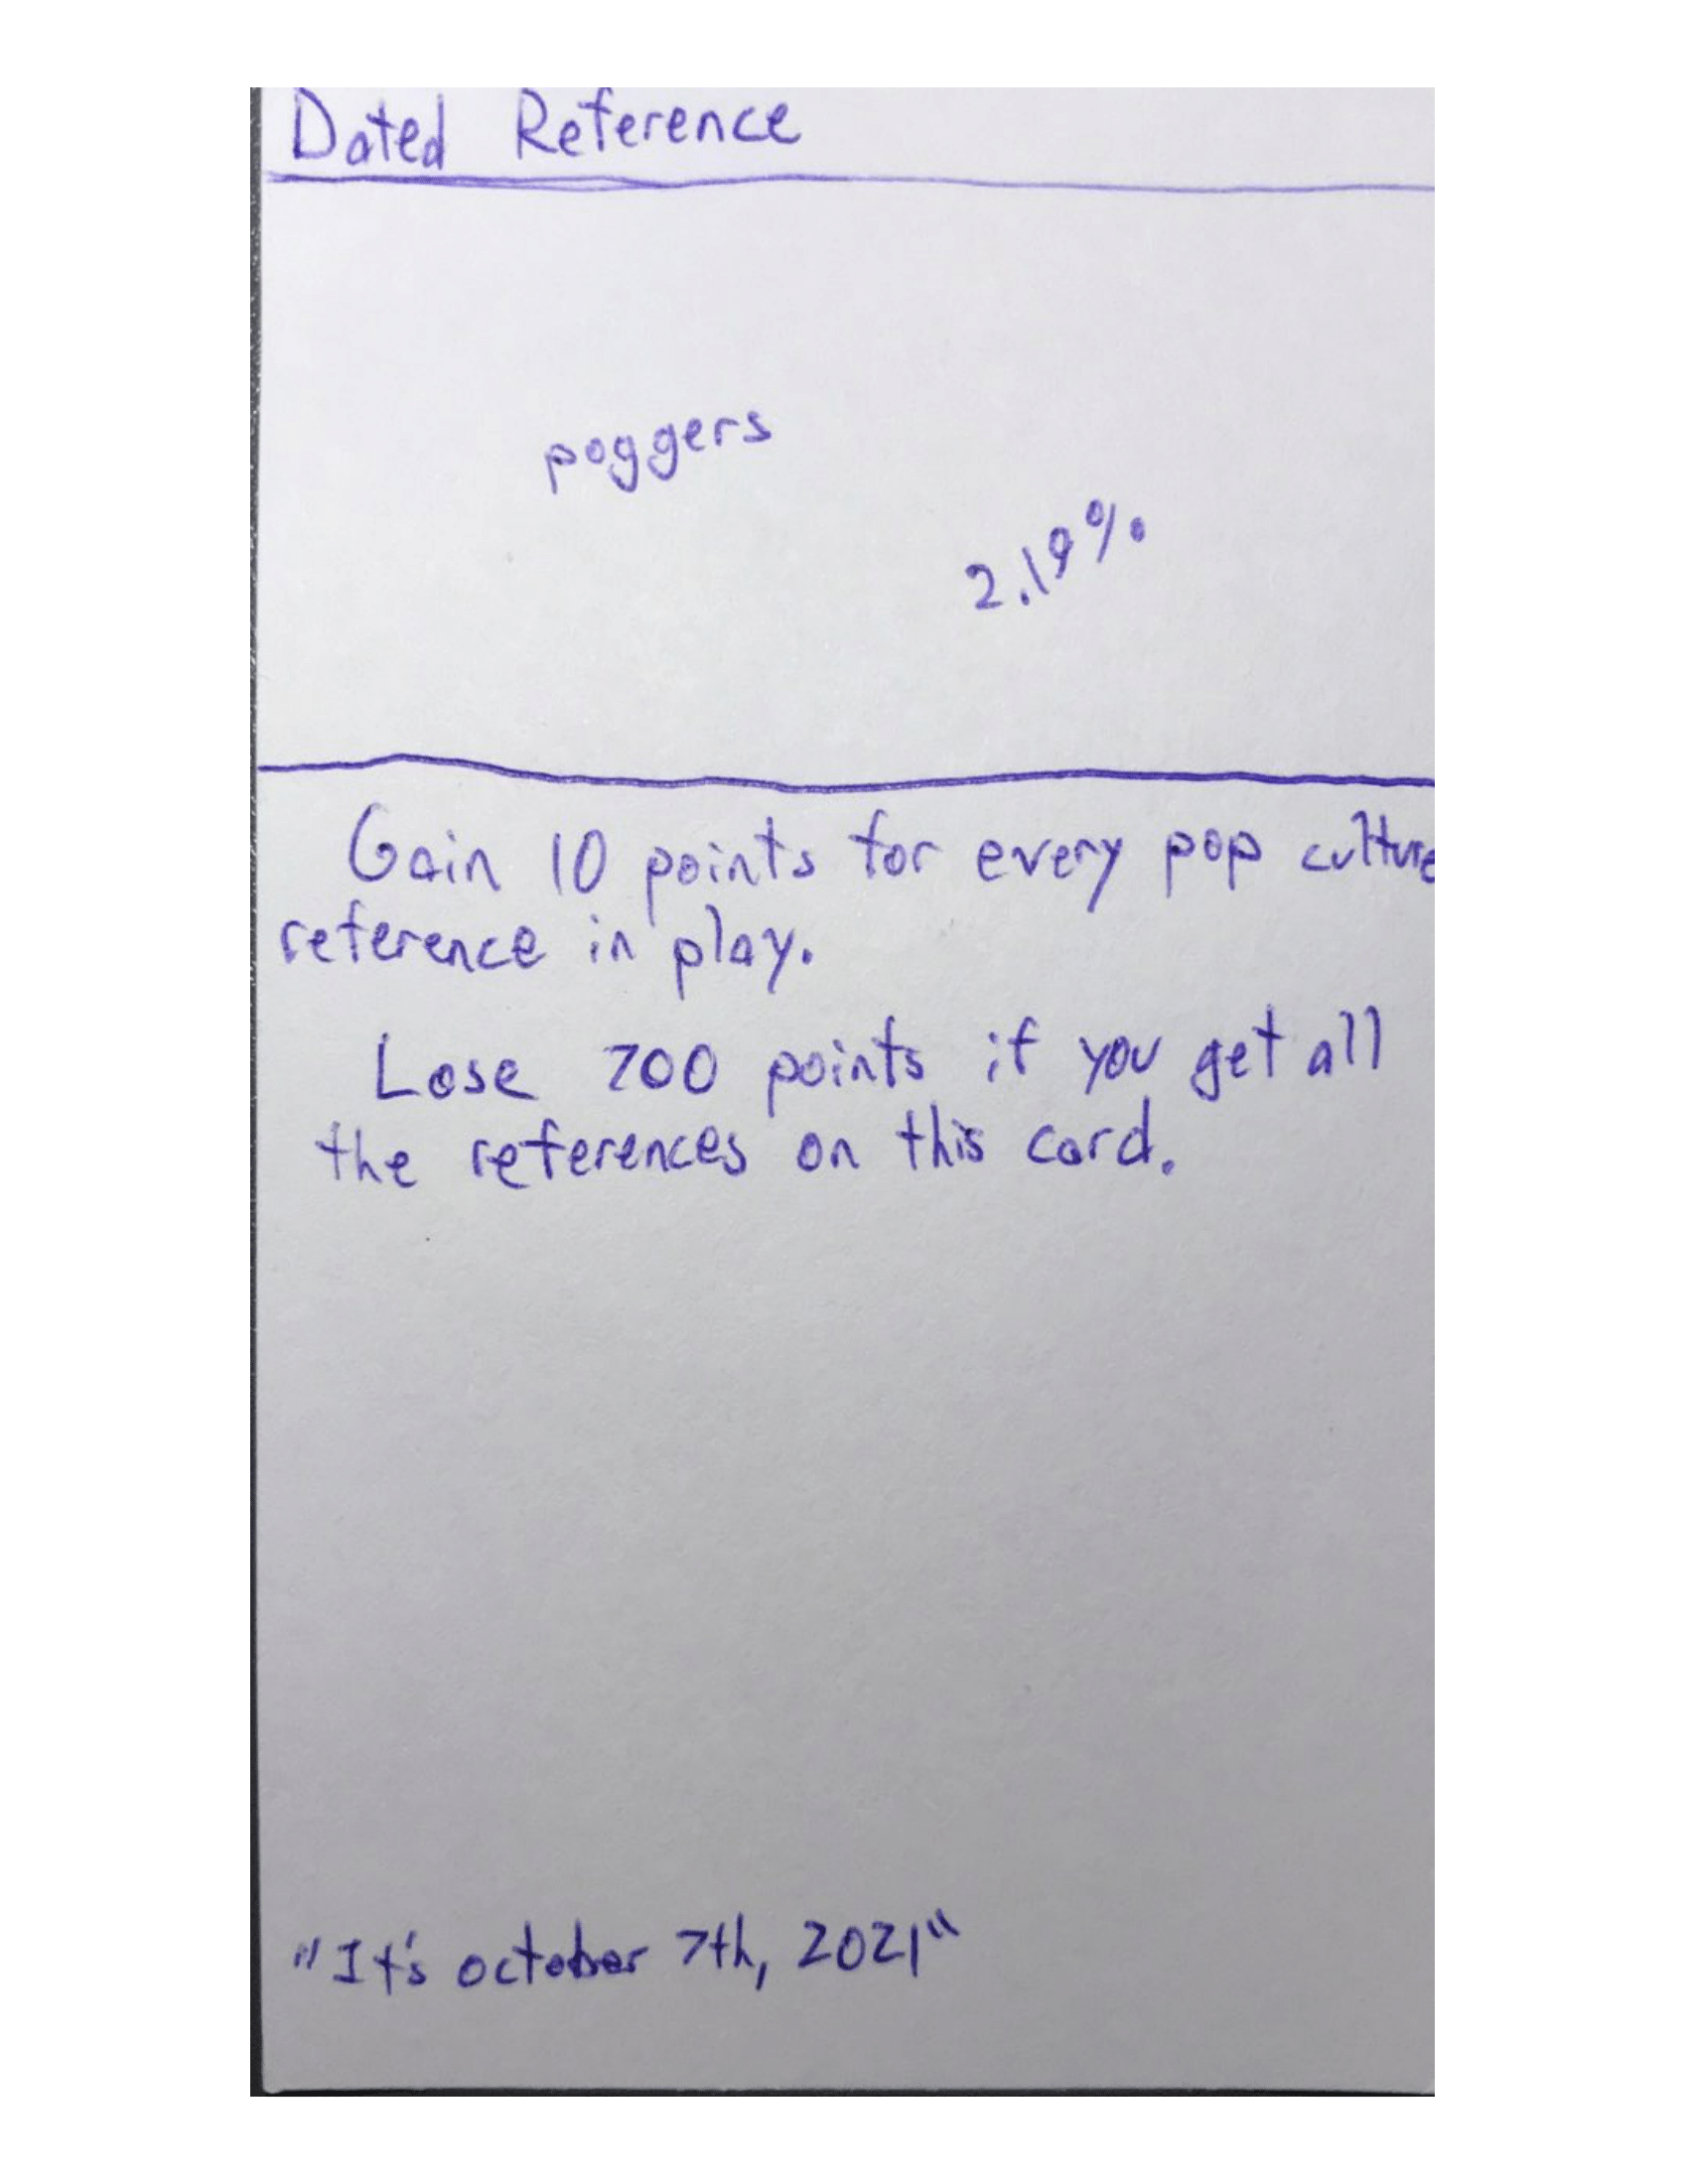 Dated Reference
poggers
2.19%
Gain 10 points for every pop culture
reference in play.
Lose 700 points if you get all
the references on this card.
"It's october 7th, 2021"